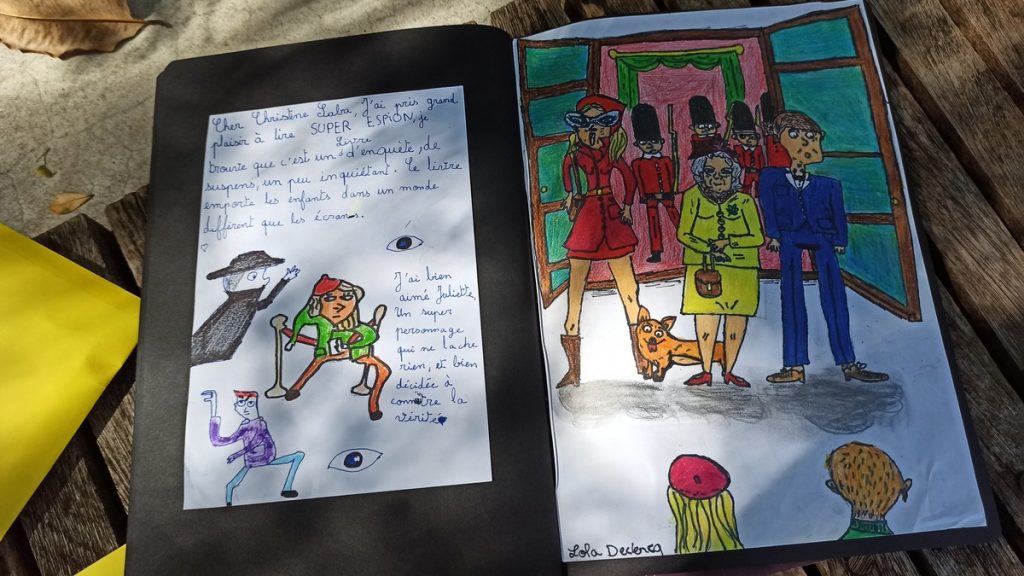 Cher Christine Saba, J'ai pris grand
plaisir à lire SUPER ESPION, je
Livre
trouve que c'est un d'enquête, de
suspens, un peu inquiétant. Ce livre
emporte les enfants dans un monde
différent que les écrans.
J'ai bien
aimé Juliette,
Un super
personnage
qui ne lache
rien, et bien
décidée à
connaître la
vérité
Lola Declercq